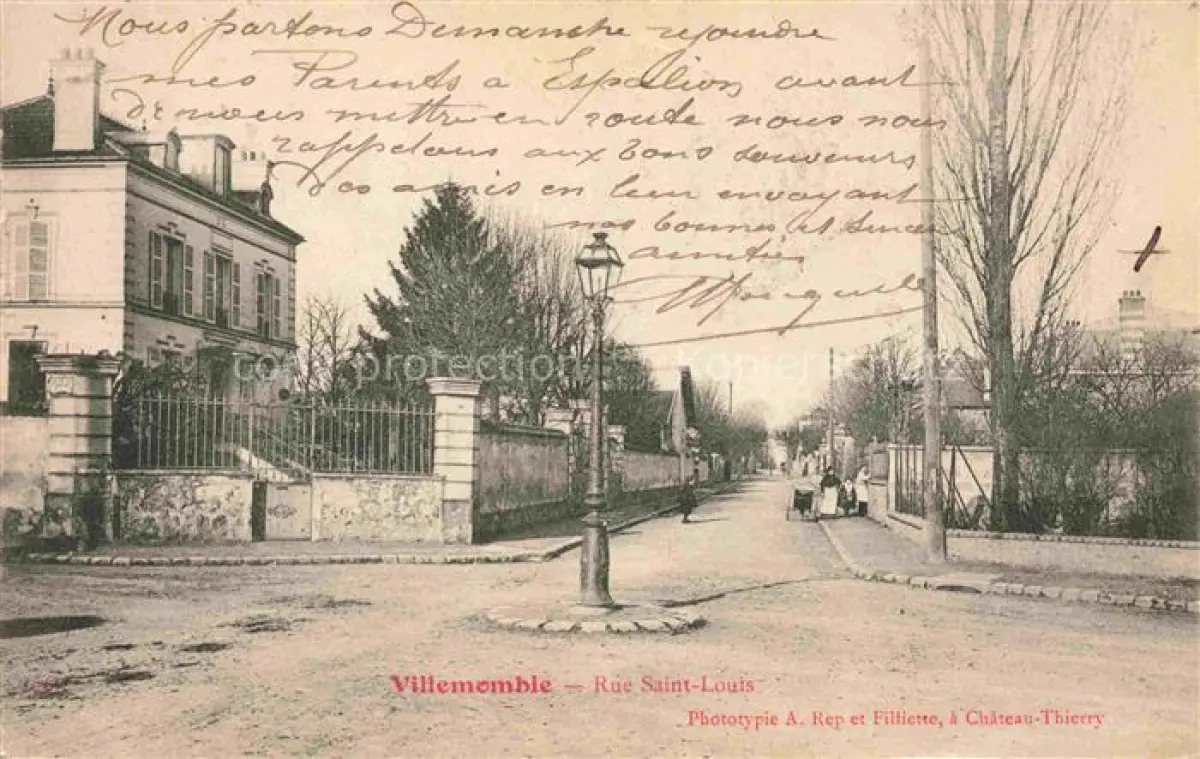 Nous partons Dimanche rejoindre
mes Parents a Espalion avant
de nous mettre en route nous nous
rappelons aux bons souvenirs
des amis en leur envoyant
nos bonnes et sincères
amitiés
copyright protection - Kopierschutz
Villemomble — Rue Saint-Louis
Phototypie A. Rep et Filliette, à Château-Thierry